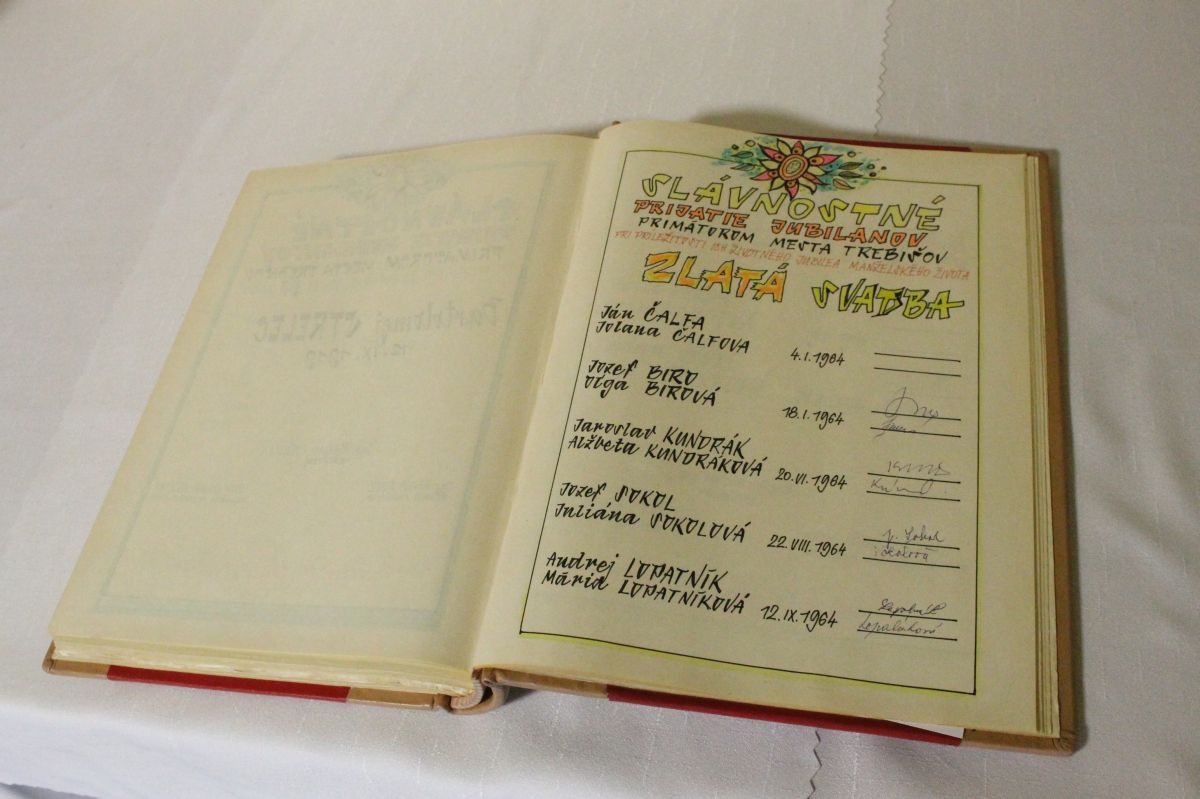 SLÁVNOSTNÉ
PRIJATIE JUBILANOV
PRIMÁTOROM MESTA TREBIŠOV
PRI PRÍLEŽITOSTI ICH ŽIVOTNÉHO JUBILEA MANŽELSKÉHO ŽIVOTA
ZLATÁ SVADBA
Ján ČALFA
Jolana ČALFOVA 4.I.1964
Jozef BIRO
Oľga BIROVÁ 18.I.1964
Jaroslav KUNDRÁK
Alžbeta KUNDRÁKOVÁ 20.VI.1964
Jozef SOKOL
Juliána SOKOLOVÁ 22.VIII.1964
J. Sokol
Andrej LOPATNÍK
Mária LOPATNÍKOVÁ 12.IX.1964